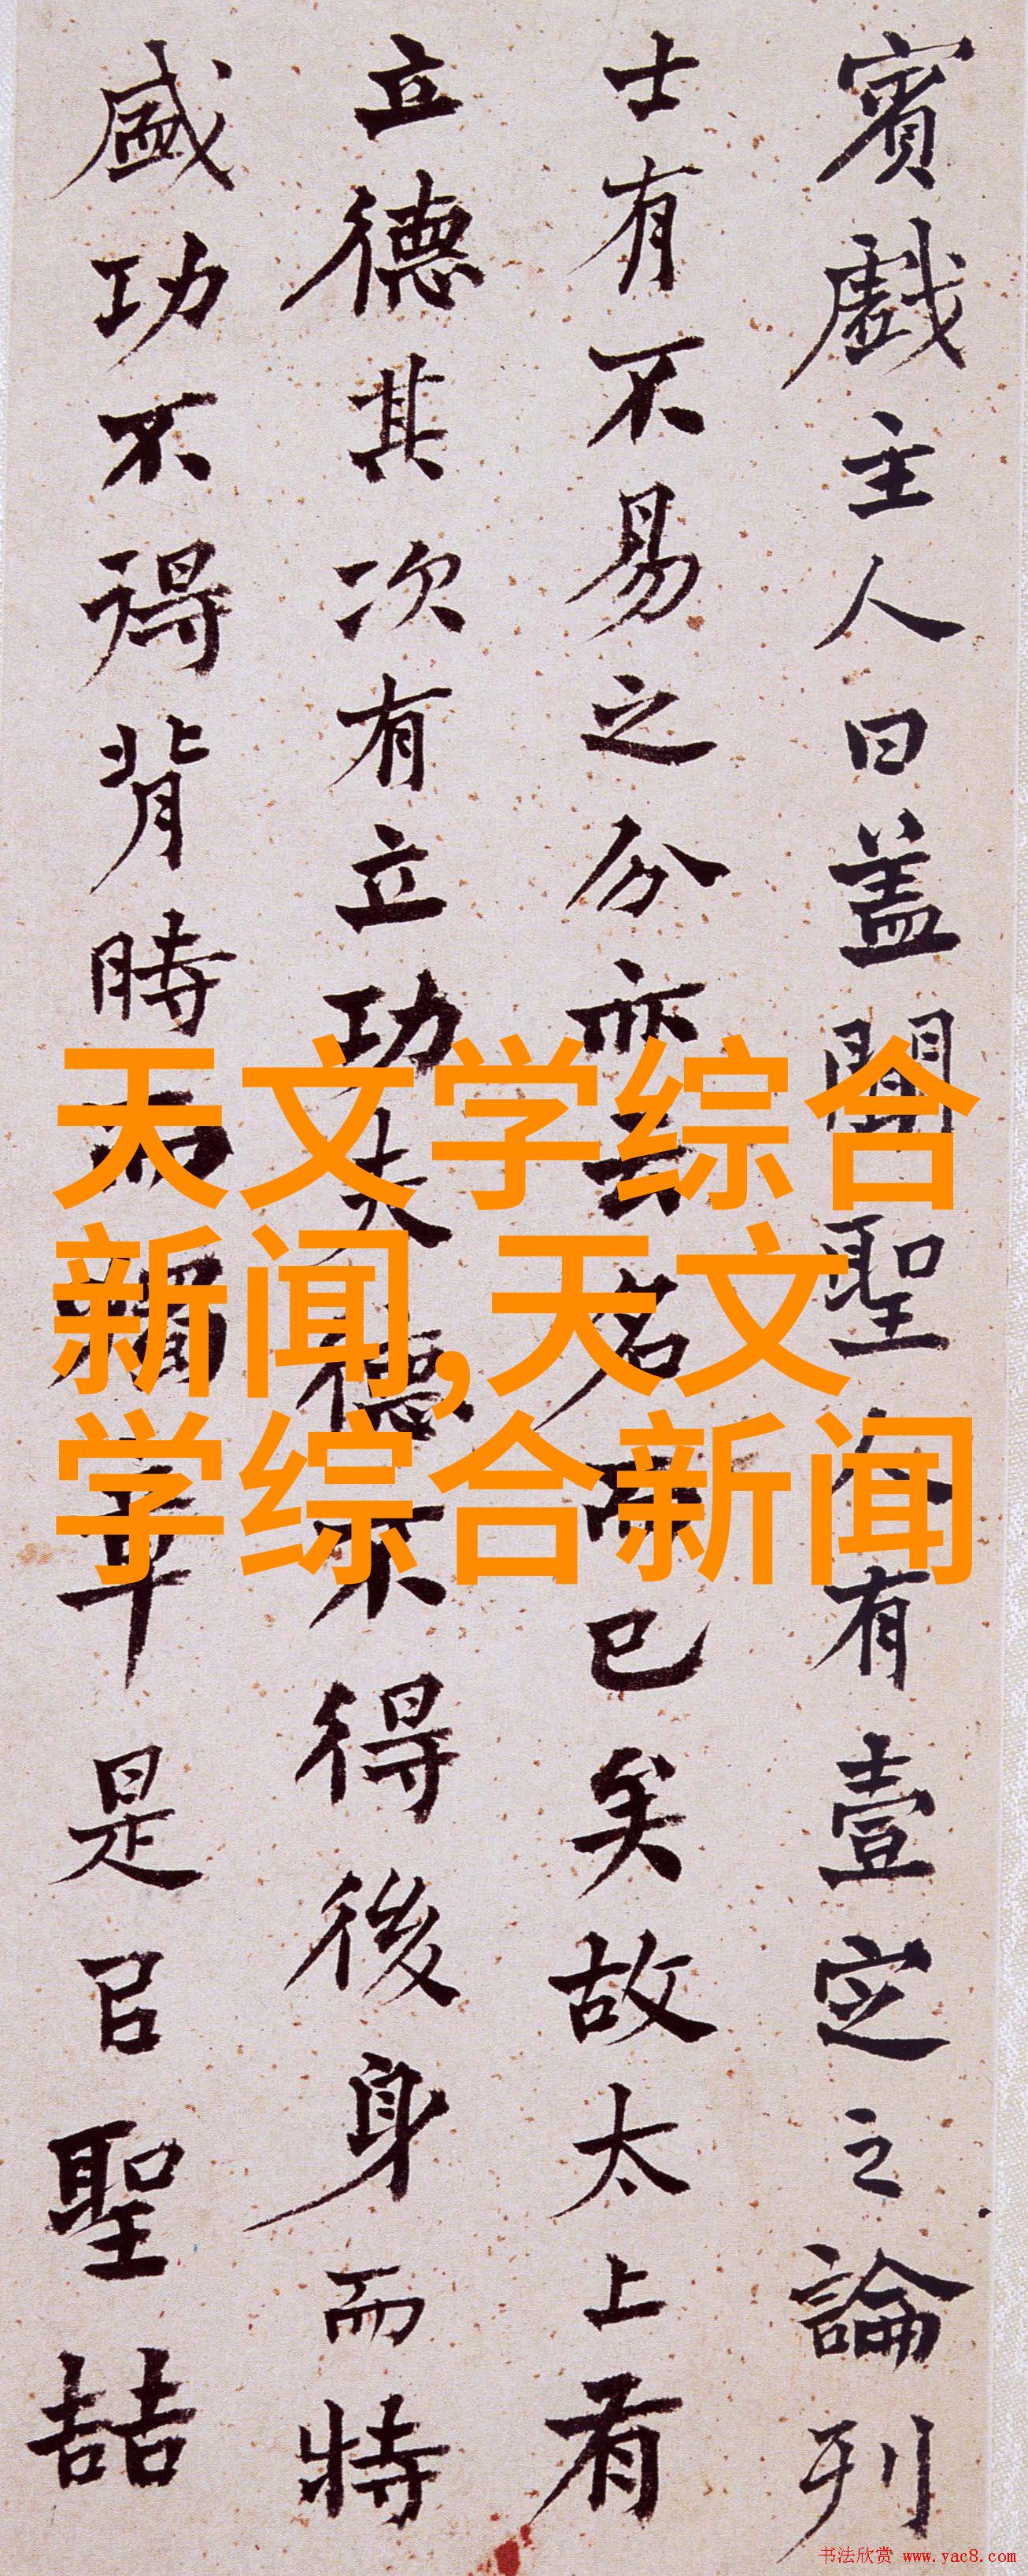 賓戲主人曰盖聞聖人有壹定之論列
士有不易之分亦云名而已矣故太上有
立德其次有立功夫德不得後身而特
盛功不得背時而獨章是㠯聖喆
天文学综合
新闻,天文
学综合新闻
书法欣赏 www.yac8.com